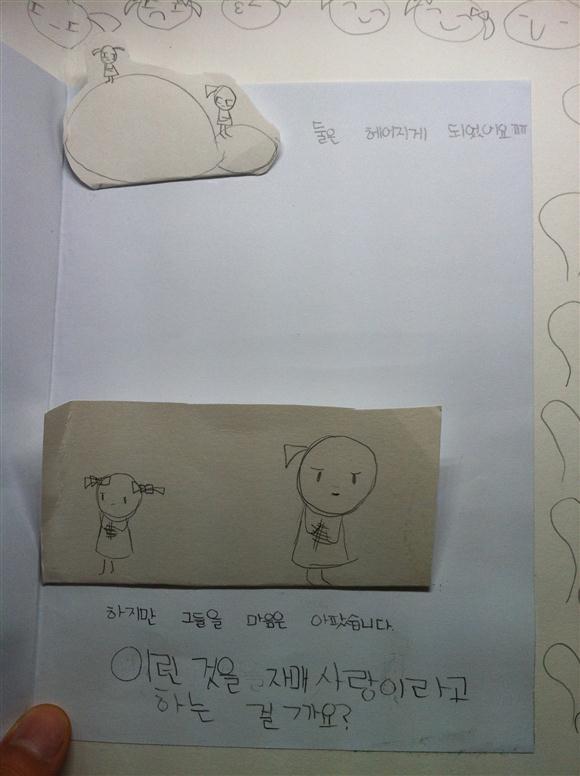 둘은 헤어지게 되었어요ㅠㅠ
하지만 그들을 마음은 아팠습니다.
이런 것을 자매 사랑이라고
하는 걸까요?